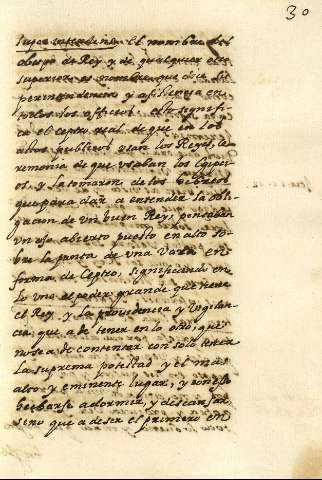 30
superintendens. El nombre del
obispo de Rey y de qualquier otro
superior es nombre que dice su
perintendencia y asistencia en
todos los officios. esto signifi-
ca el ceptro real de que en los
actos publicos usan los Reyes, ce
remonia de que usaban los Egipci
os, y la tomaron de los Hebreos
que para dar a entender la obli-
gacion de un buen Rey, pensaban
un ojo abierto puesto en alto so-
bre la punta de una Vara en
forma de Ceptro, significando en
lo uno el poder grande que tiene
el Rey, y la providencia y Vigilan-
cia que a de tener en lo otro, que
no se a de contentar con solo tener
la suprema potestad y el mas
alto y eminente lugar, y con eso
hecharse a dormir, y descansar,
sino que a de ser el primero en